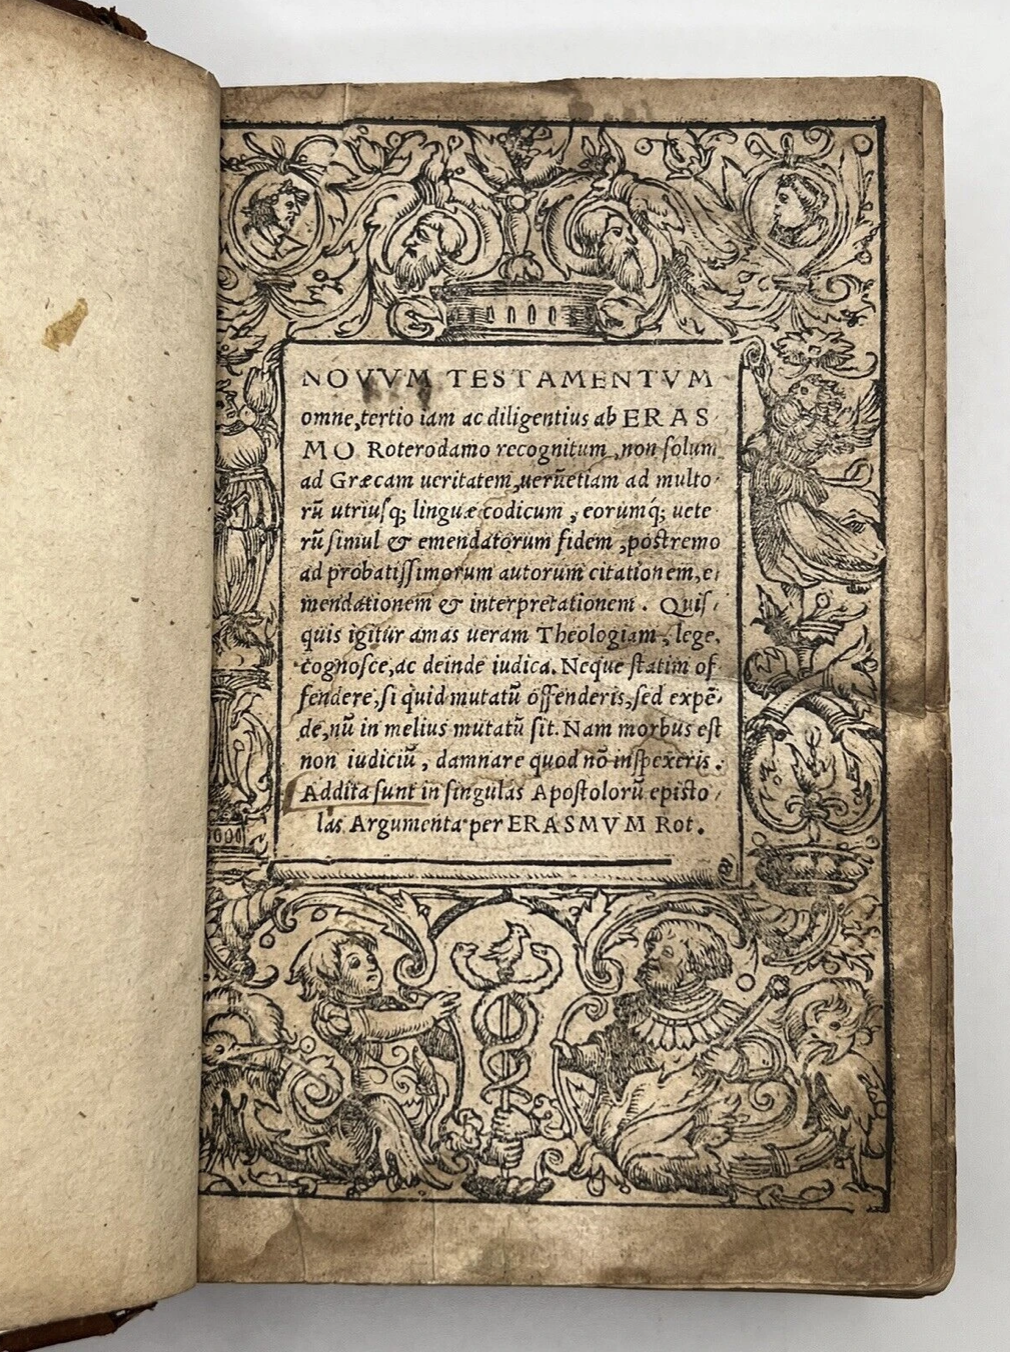 NOVVM TESTAMENTVM
omne, tertio iam ac diligentius ab ERAS
MO Roterodamo recognitum, non solum
ad Græcam ueritatem, uerũetiam ad multo-
rũ utriusq; linguæ codicum, eorumq́; uete
rũ simul & emendatorum fidem, postremo
ad probatissimorum autorum citationem, e-
mendationem & interpretationem. Quis-
quis igitur amas ueram Theologiam, lege,
cognosce, ac deinde iudica. Neque statim of
fendere, si quid mutatũ offenderis, sed expẽ-
de, nũ in melius mutatũ sit. Nam morbus est
non iudiciũ, damnare quod nõ inspexeris.
Addita sunt in singulas Apostolorũ episto-
las Argumenta per ERASMVM Rot.